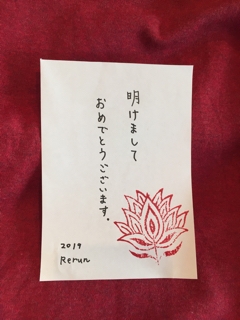 明けまして
おめでとうございます。
2019
Rerun